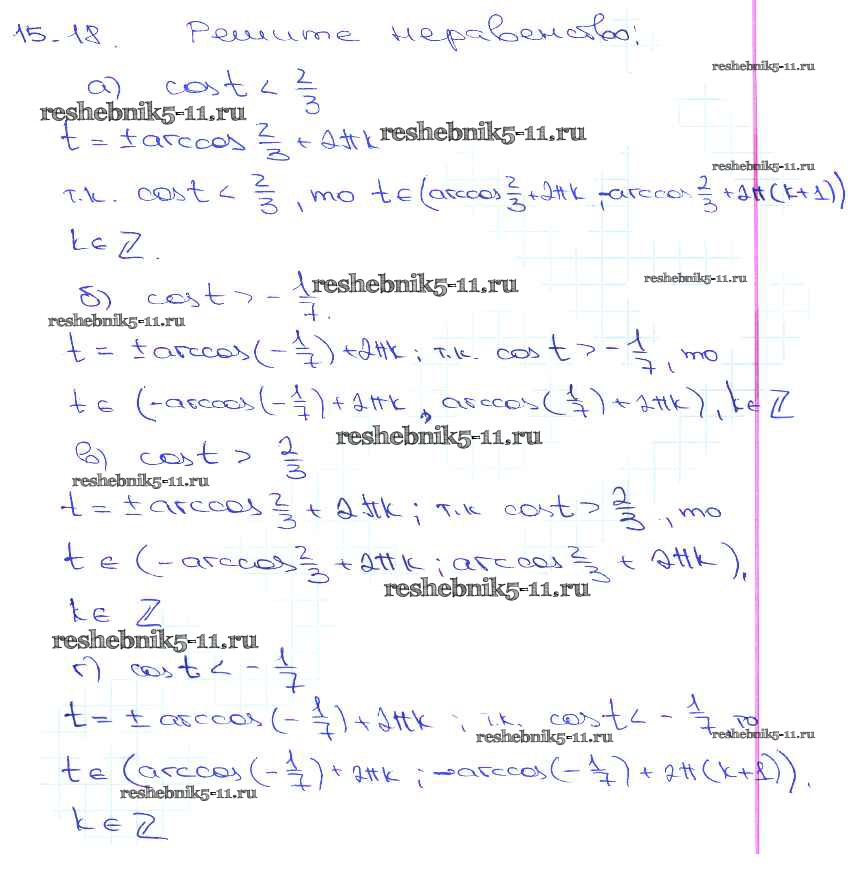 15-18. Решите неравенство:
reshebnik5-11.ru
а) cos t < 2/3
reshebnik5-11.ru
t = ± arccos 2/3 + 2πk
reshebnik5-11.ru
reshebnik5-11.ru
т.к. cos t < 2/3, то t ∈ (arccos 2/3 + 2πk; -arccos 2/3 + 2π(k+1))
k ∈ ℤ.
reshebnik5-11.ru
reshebnik5-11.ru
б) cos t > -1/7.
reshebnik5-11.ru
t = ± arccos(-1/7) + 2πk; т.к. cos t > -1/7, то
t ∈ (-arccos(-1/7) + 2πk, arccos(1/7) + 2πk), k ∈ ℤ
reshebnik5-11.ru
в) cos t > 2/3
reshebnik5-11.ru
t = ± arccos 2/3 + 2πk; т.к cos t > 2/3, то
t ∈ (-arccos 2/3 + 2πk; arccos 2/3 + 2πk),
reshebnik5-11.ru
k ∈ ℤ
reshebnik5-11.ru
г) cos t < -1/7
t = ± arccos(-1/7) + 2πk; т.к. cos t < -1/7, то
reshebnik5-11.ru
reshebnik5-11.ru
t ∈ (arccos(-1/7) + 2πk; -arccos(-1/7) + 2π(k+1)).
reshebnik5-11.ru
k ∈ ℤ